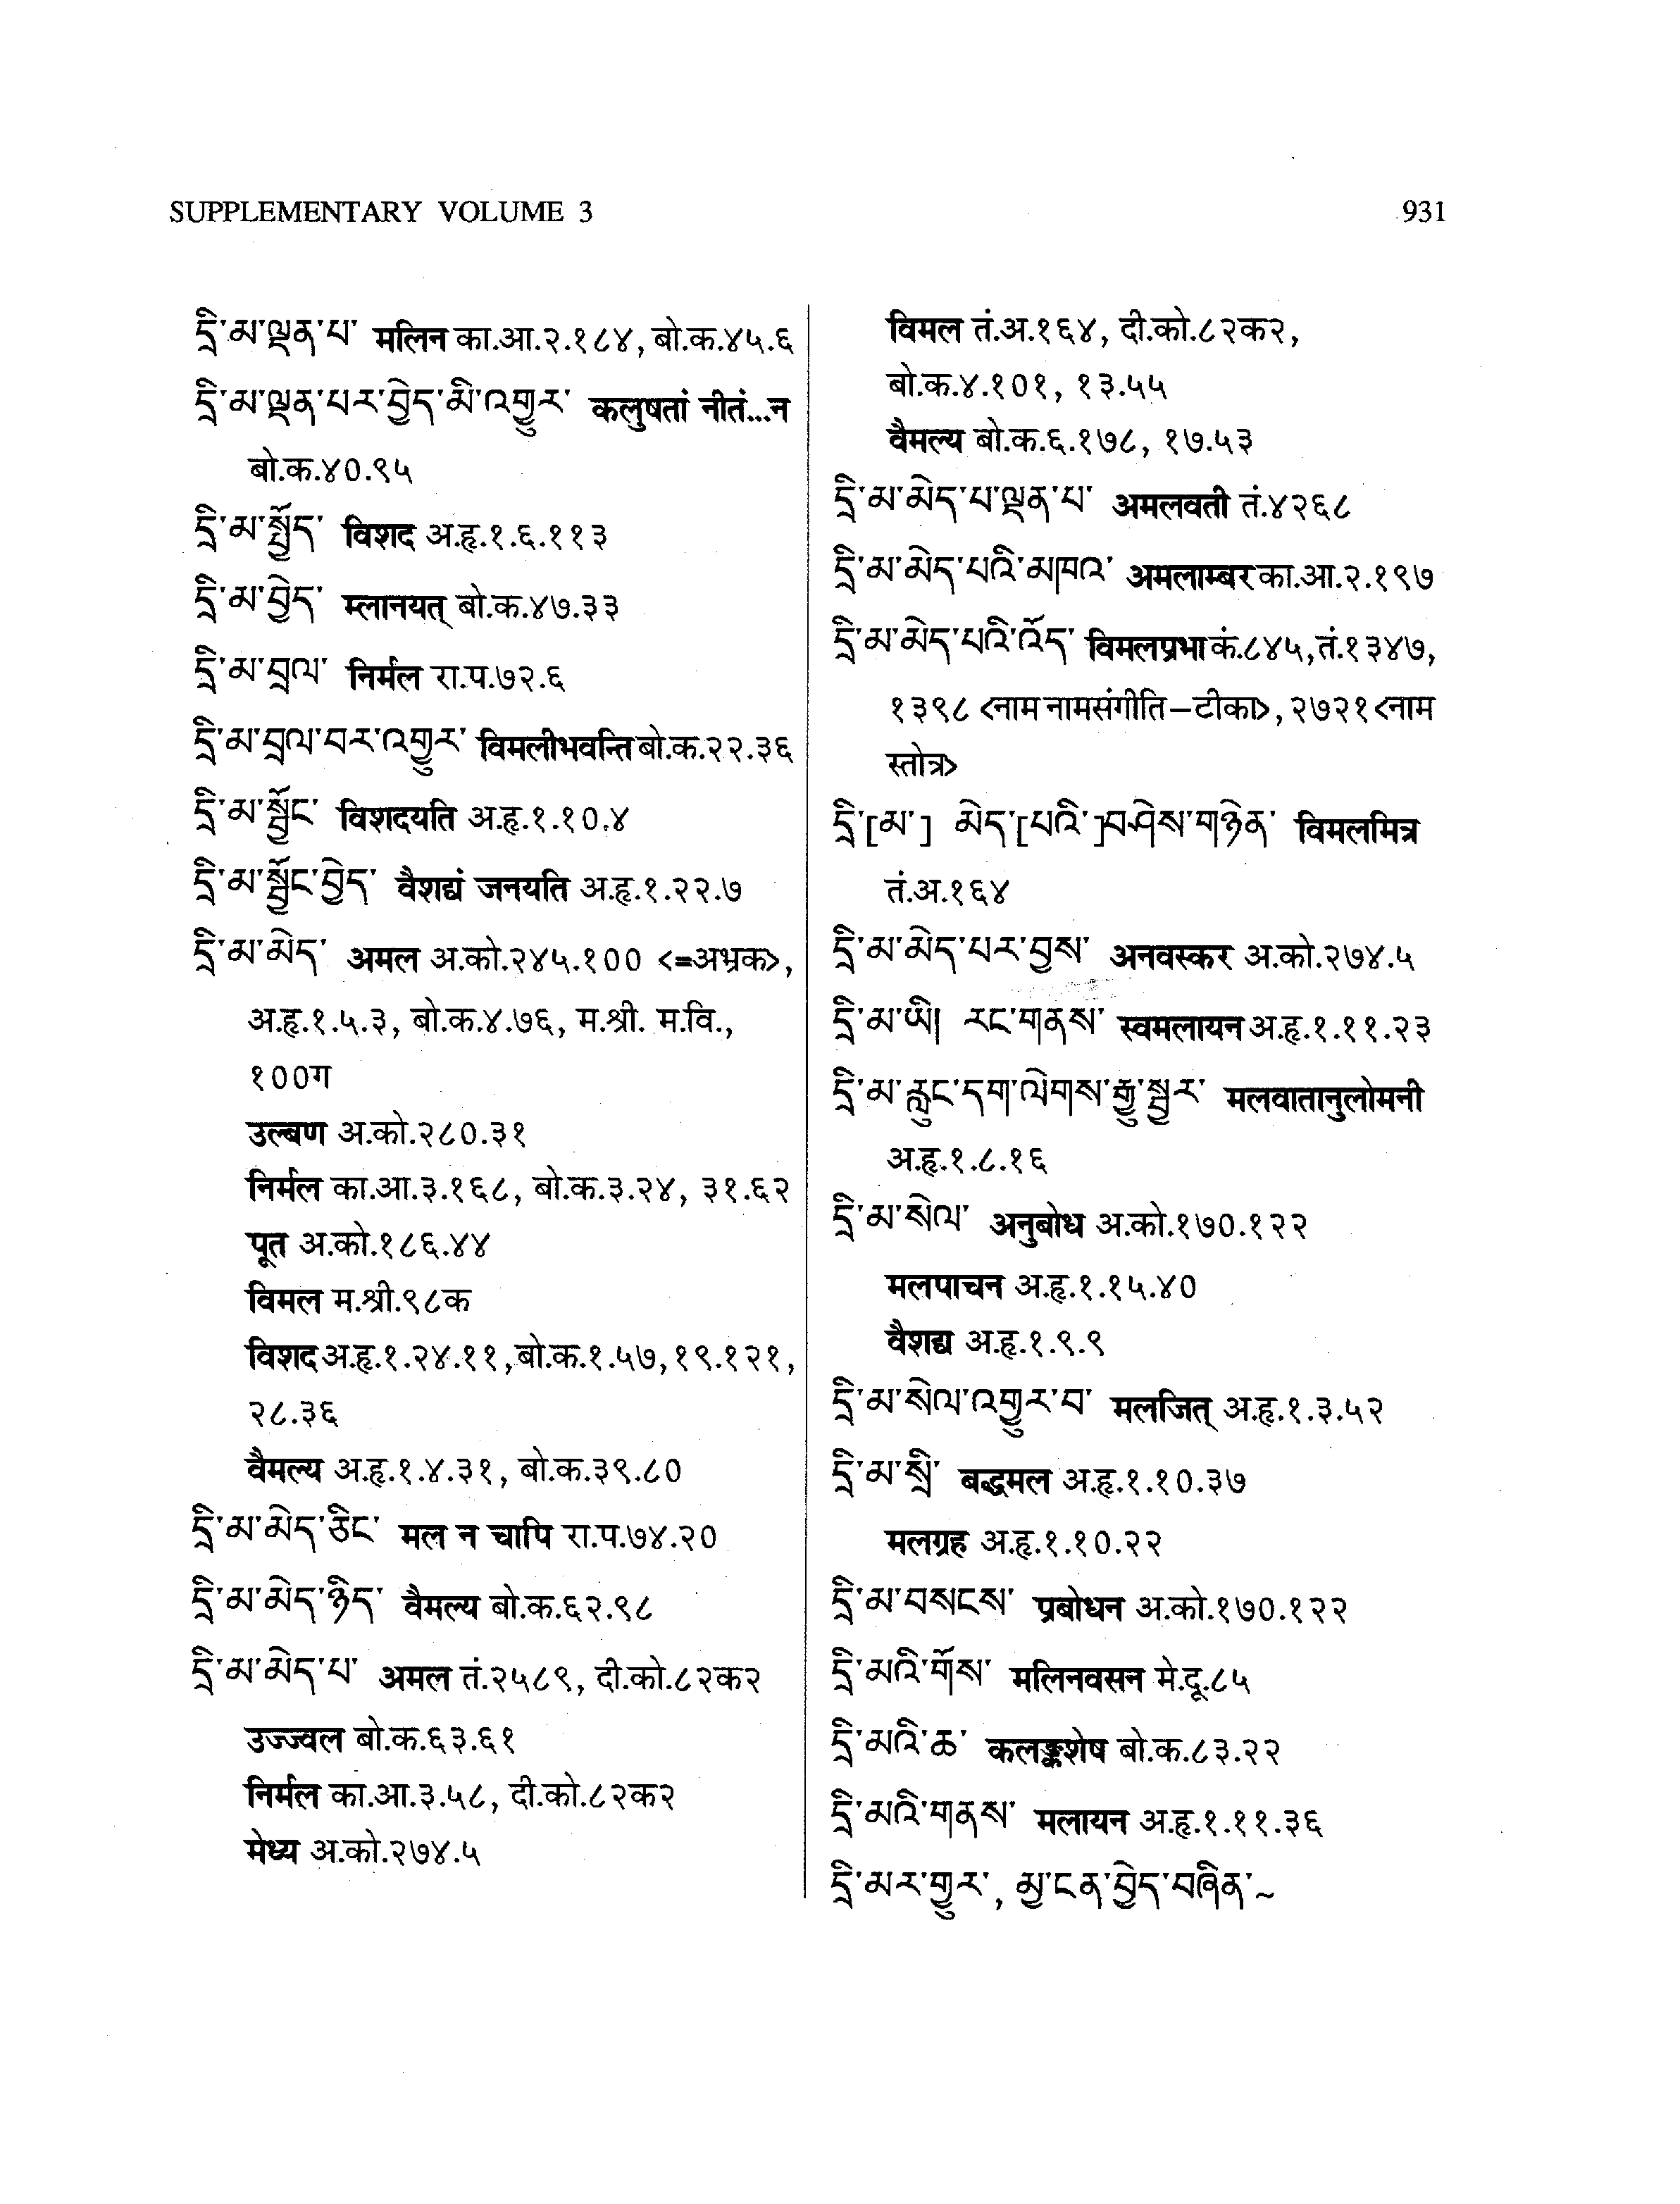 SUPPLEMENTARY VOLUME 3
931
དྲི་མ་ལྡན་པ་ मलिन का.आ.२.१८४, बो.क.४५.६
དྲི་མ་ལྡན་པར་བྱེད་མི་འགྱུར་ कलुषतां नीतं...न
बो.क.४०.९५
དྲི་མ་སྤྱོད་ विशद अ.हृ.१.६.११३
དྲི་མ་བྱེད་ म्लानयत् बो.क.४७.३३
དྲི་མ་བྲལ་ निर्मल रा.प.७२.६
དྲི་མ་བྲལ་བར་འགྱུར་ विमलीभवन्ति बो.क.२२.३६
དྲི་མ་སྦྱོང་ विशदयति अ.हृ.१.१०.४
དྲི་མ་སྦྱོང་བྱེད་ वैशद्यं जनयति अ.हृ.१.२२.७
དྲི་མ་མེད་ अमल अ.को.२४५.१०० <=अभ्रक>,
अ.हृ.१.५.३, बो.क.४.७६, म.श्री. म.वि.,
१००ग
उल्बण अ.को.२८०.३१
निर्मल का.आ.३.१६८, बो.क.३.२४, ३१.६२
पूत अ.को.१८६.४४
विमल म.श्री.९८क
विशद अ.हृ.१.२४.११, बो.क.१.५७, १९.१२१,
२८.३६
वैमल्य अ.हृ.१.४.३१, बो.क.३९.८०
དྲི་མ་མེད་ཅིང་ मल न चापि रा.प.७४.२०
དྲི་མ་མེད་ཉིད་ वैमल्य बो.क.६२.९८
དྲི་མ་མེད་པ་ अमल तं.२५८९, दी.को.८२क२
उज्ज्वल बो.क.६३.६१
निर्मल का.आ.३.५८, दी.को.८२क२
मेध्य अ.को.२७४.५
विमल तं.अ.१६४, दी.को.८२क२,
बो.क.४.१०१, १३.५५
वैमल्य बो.क.६.१७८, १७.५३
དྲི་མ་མེད་པ་ལྡན་པ་ अमलवती तं.४२६८
དྲི་མ་མེད་པའི་མཁའ་ अमलाम्बर का.आ.२.१९७
དྲི་མ་མེད་པའི་འོད་ विमलप्रभा कं.८४५, तं.१३४७,
१३९८ <नाम नामसंगीति–टीका>, २७२१ <नाम
स्तोत्र>
དྲི་[མ་] མེད་[པའི་]བཤེས་གཉེན་ विमलमित्र
तं.अ.१६४
དྲི་མ་མེད་པར་བྱས་ अनवस्कर अ.को.२७४.५
དྲི་མ་ཡི། རང་གནས་ स्वमलायन अ.हृ.१.११.२३
དྲི་མ་རླུང་དག་ལེགས་རྒྱུ་སྦྱར་ मलवातानुलोमनी
अ.हृ.१.८.१६
དྲི་མ་སེལ་ अनुबोध अ.को.१७०.१२२
मलपाचन अ.हृ.१.१५.४०
वैशद्य अ.हृ.१.९.९
དྲི་མ་སེལ་འགྱུར་བ་ मलजित् अ.हृ.१.३.५२
དྲི་མ་སྲི་ बद्धमल अ.हृ.१.१०.३७
मलग्रह अ.हृ.१.१०.२२
དྲི་མ་བསངས་ प्रबोधन अ.को.१७०.१२२
དྲི་མའི་གོས་ मलिनवसन मे.दू.८५
དྲི་མའི་ཆ་ कलङ्कशेष बो.क.८३.२२
དྲི་མའི་གནས་ मलायन अ.हृ.१.११.३६
དྲི་མར་གྱུར་, མྱ་ངན་བྱེད་བཞིན་~